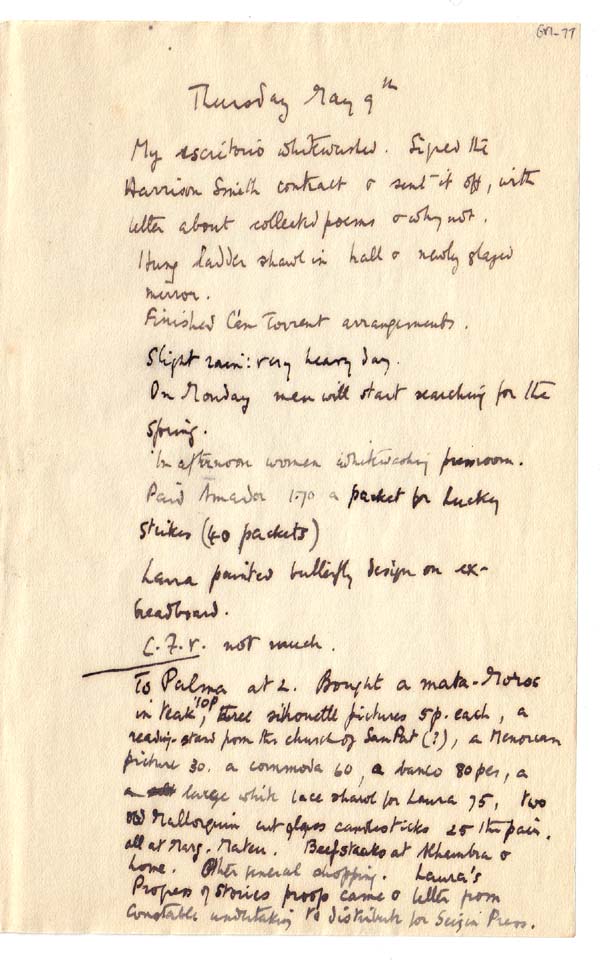 GM-77
Thursday May 9th
My escritorio whitewashed. Signed the
Harrison Smith contract & sent it off, with
letter about collected poems & why not.
Hung ladder shawl in hall & newly glazed
mirror.
Finished C'an Torrent arrangements.
Slight rain: very heavy day.
On Monday men will start searching for the
spring.
In afternoon women whitewashing pressroom.
Paid Amador 1.70 a packet for Lucky
Strikes (40 packets)
Laura painted butterfly design on ex-
breadboard.
not much.
To Palma at 2. Bought a mata-Moros
in teak, 10p three silhouette pictures 5 p. each, a
reading-stand from the church of San Pat (?), a Menorcan
picture 30. a commoda 60, a banco 80 pes, a
large white lace shawl for Laura 75, two
old Mallorquin cut glass candlesticks 25 the pair.
all at Marg. Mateu. Beefsteaks at Alhambra &
home. Other general shopping. Laura's
Progress of Stories proofs came & letter from
Constable undertaking to distribute for Seizin Press.